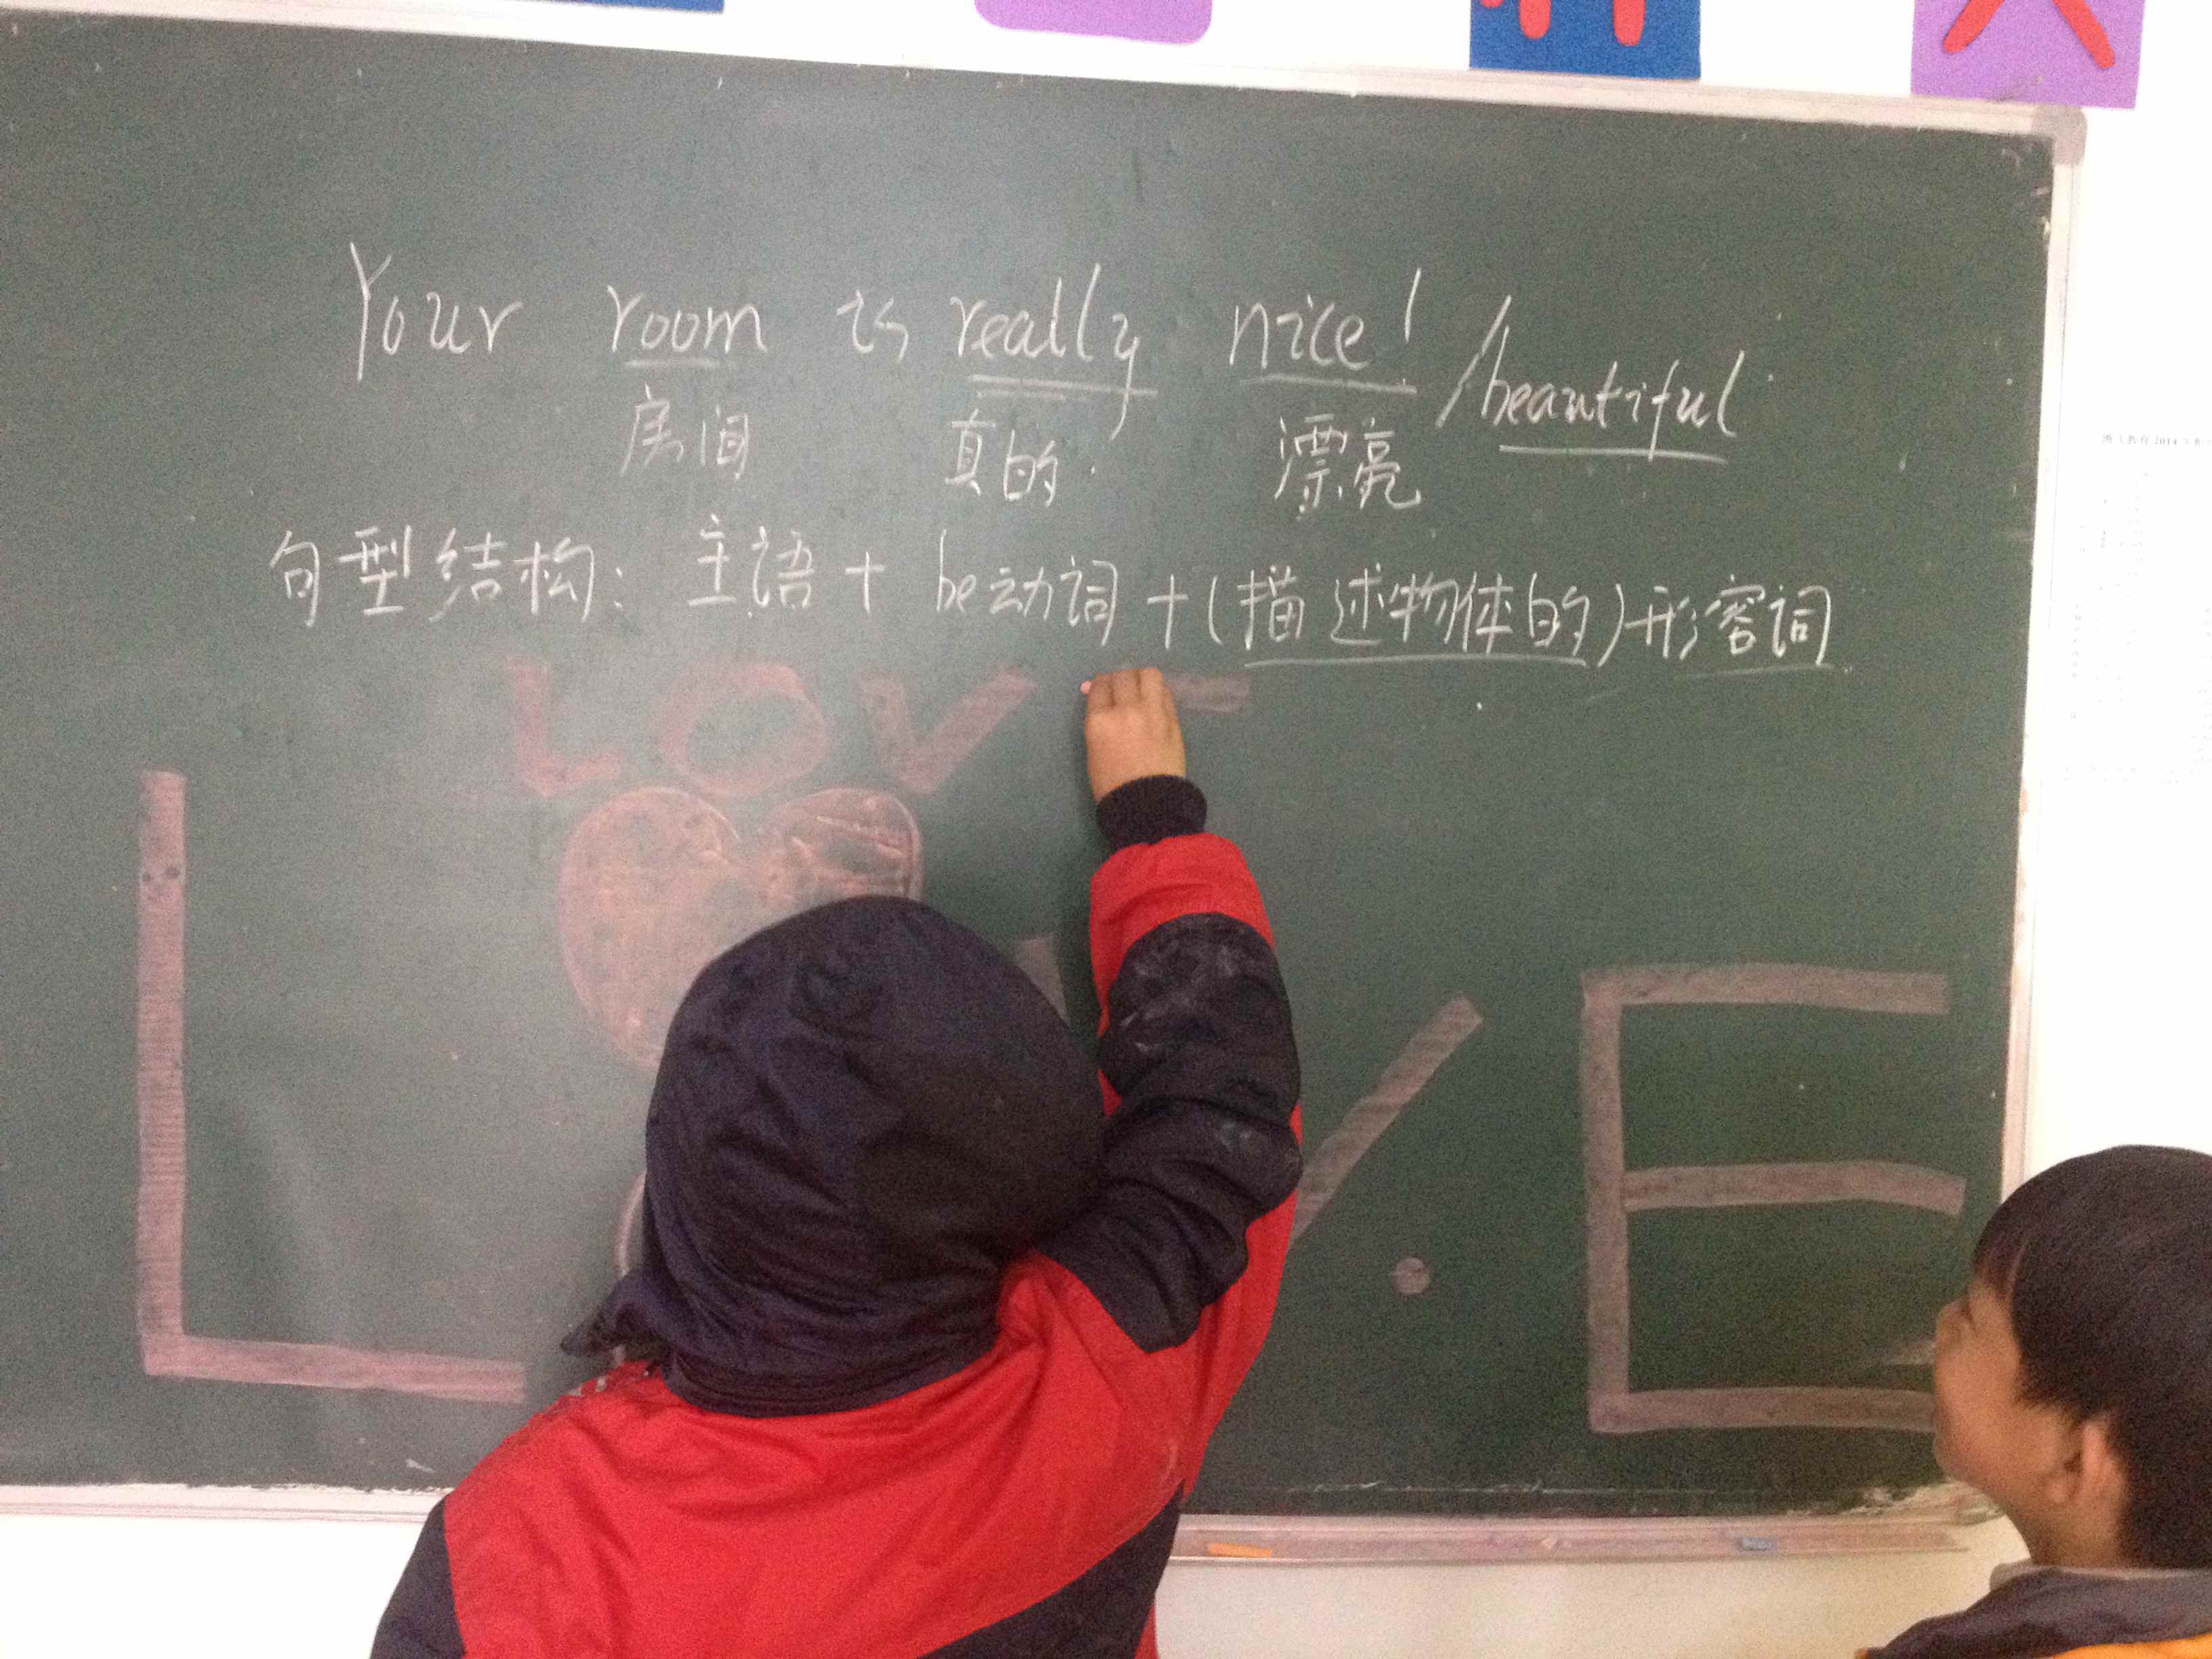 Your room is really nice! /beautiful
房间 真的 漂亮
句型结构: 主语 + be动词 + (描述物体的)形容词
LOV
L VE